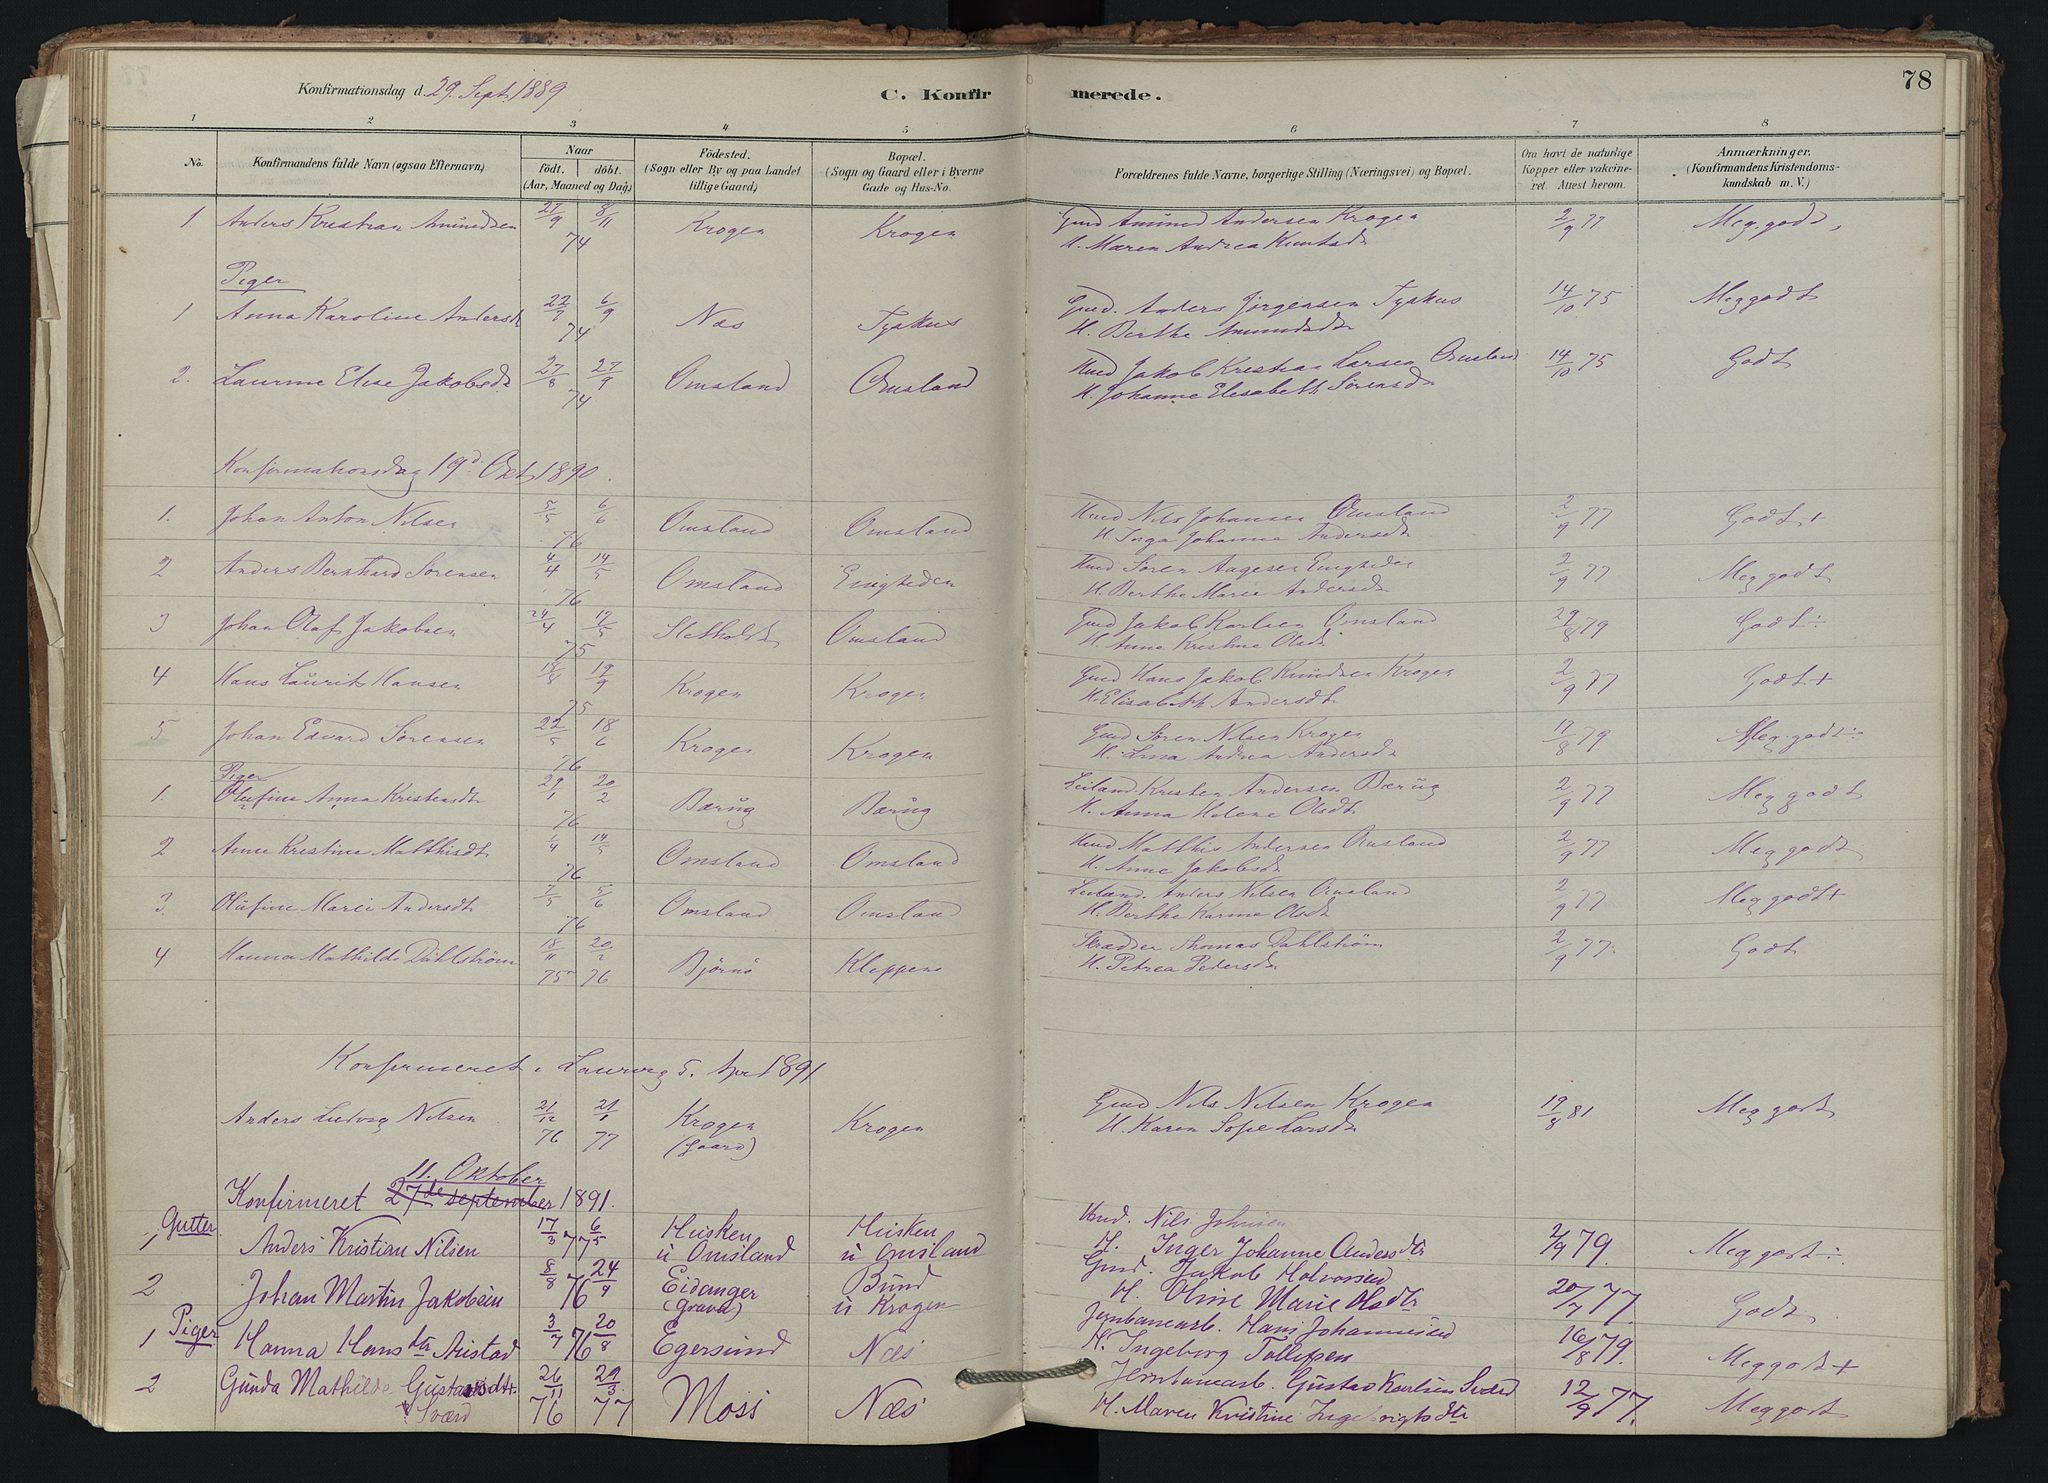 78
Konfirmationsdag d. 29. Sept 1889
C. Konfirmerede.
1 2 3 4 5 6 7 8
No. Konfirmandens fulde Navn (ogsaa Efternavn) Naar födt. döbt. (Aar, Maaned og Dag) Födested. (Sogn eller By og paa Landet tillige Gaard) Bopæl. (Sogn og Gaard eller i Byerne Gade og Hus-No. Forældrenes fulde Navne, borgerlige Stilling (Næringsvei) og Bopæl. Om havt de naturlige Kopper eller vakcineret. Attest herom. Anmærkninger. (Konfirmandens Kristendomskundskab m. V.)
1. Anders Kristian Amundsen 27/9 8/11 74 Krogen Krogen Gmd Amund Andersen Krogen 2/9 77 Meg. godt,
H. Maren Andrea Knutsdt
Piger
1 Anna Karoline Andersdt 22/7 6/9 74 Næs Tyskus Gmd. Anders Jørgensen Tyskus 14/10 75 Meg godt
H. Berthe Amundsdt
2. Laurine Elise Jakobsdt 27/8 27/9 74 Omsland Omsland Hmd Jakob Kristian Larsen Omsland 14/10 75 Godt
H. Johanne Elisabeth Sørensdt
Konfirmationsdag 19d Okt 1890.
1. Johan Anton Nilsen 5/5 6/6 76 Omsland Omsland Hmd Nils Johansen Omsland 2/9 77 Godt +
H Inga Johanna Andersdt
2 Anders Bernhard Sørensen 4/4 14/5 76 Omsland Enigheden Hmd Søren Aagesen Enigheden 2/9 77 Meg godt
H. Berthe Marie Andersdt
3 Johan Olaf Jakobsen 24/4 17/5 75 Sletholdt Omsland Gmd Jakob Karlsen Omsland 29/8 79 Godt ÷
H. Anne Kristine Olsdt
4 Hans Laurits Hansen 15/8 19/9 75 Krogen Krogen Gmd Hans Jakob Knudsen Krogen 2/9 77 Godt +
H. Elisabeth Andersdt
5 Johan Edvard Sørensen 22/5 18/6 76 Krogen Krogen Gmd Søren Nilsen Krogen 17/8 79 Meg. godt ÷
H. Lena Andrea Andersdt
Piger
1. Olufine Anna Kristensdt 29/1 20/2 76 Bærug Bærug Leiland. Kristen Andersen Bærug 2/9 77 Meg godt
H. Anna Helene Olsdt
2 Anne Kristine Matthisdt 1/4 14/5 76 Omsland Omsland Hmd Matthis Andersen Omsland 2/9 77 Meg godt
H. Anne Jakobsdt
3. Olufine Marie Andersdt 7/5 5/6 76 Omsland Omsland Leiland. Anders Nilsen Omsland 2/9 77 Meg godt +
H. Berthe Karine Olsdt
4 Hanna Mathilde Dahlstrøm 18/11 75 20/2 76 Bjørnø Kleppene Skrædder Thomas Dahlstrøm 2/9 77. Godt
H. Petrea Pedersdt
Konfirmeret i Laurvig 5. Apr 1891
Anders Ludvig Nilsen 21/12 76 21/1 77 Krogen (Gaard) Krogen Gmd Nils Nilsen Krogen 19/8 81 Meg godt
H. Karen Sofie Larsdt
11. Oktober
Konfirmeret 27de september 1891.
Gutter
1, Anders Kristian Nilsen 17/3 6/5 77 Husken u Omsland Husken u Omsland Hmd. Nils Johnsen 2/9 79. Meg godt ÷
H. Inger Johanne Andersdtr
2 Johan Martin Jakobsen 8/8 76 24/9 Eidanger (Grava) Bund u Krogen Gmd. Jakob Halvorsen 20/7 77. Godt
H. Oline Marie Olsdtr
Piger
1 Hanna Hansdtr Austad 3/7 76 20/8 Egersund Næs Jernbanearb. Hans Johannesen 16/8 79. Meg godt +
H. Ingeborg Tollefsen
2 Gunda Mathilde Gustavsdtr. Sværd 26/11 76 29/3. 77 Moss Næs Jernbanearb. Gustav Karlsen Sværd 12/9 77. Meg godt
H. Maren Kristine Ingebrigtsdtr